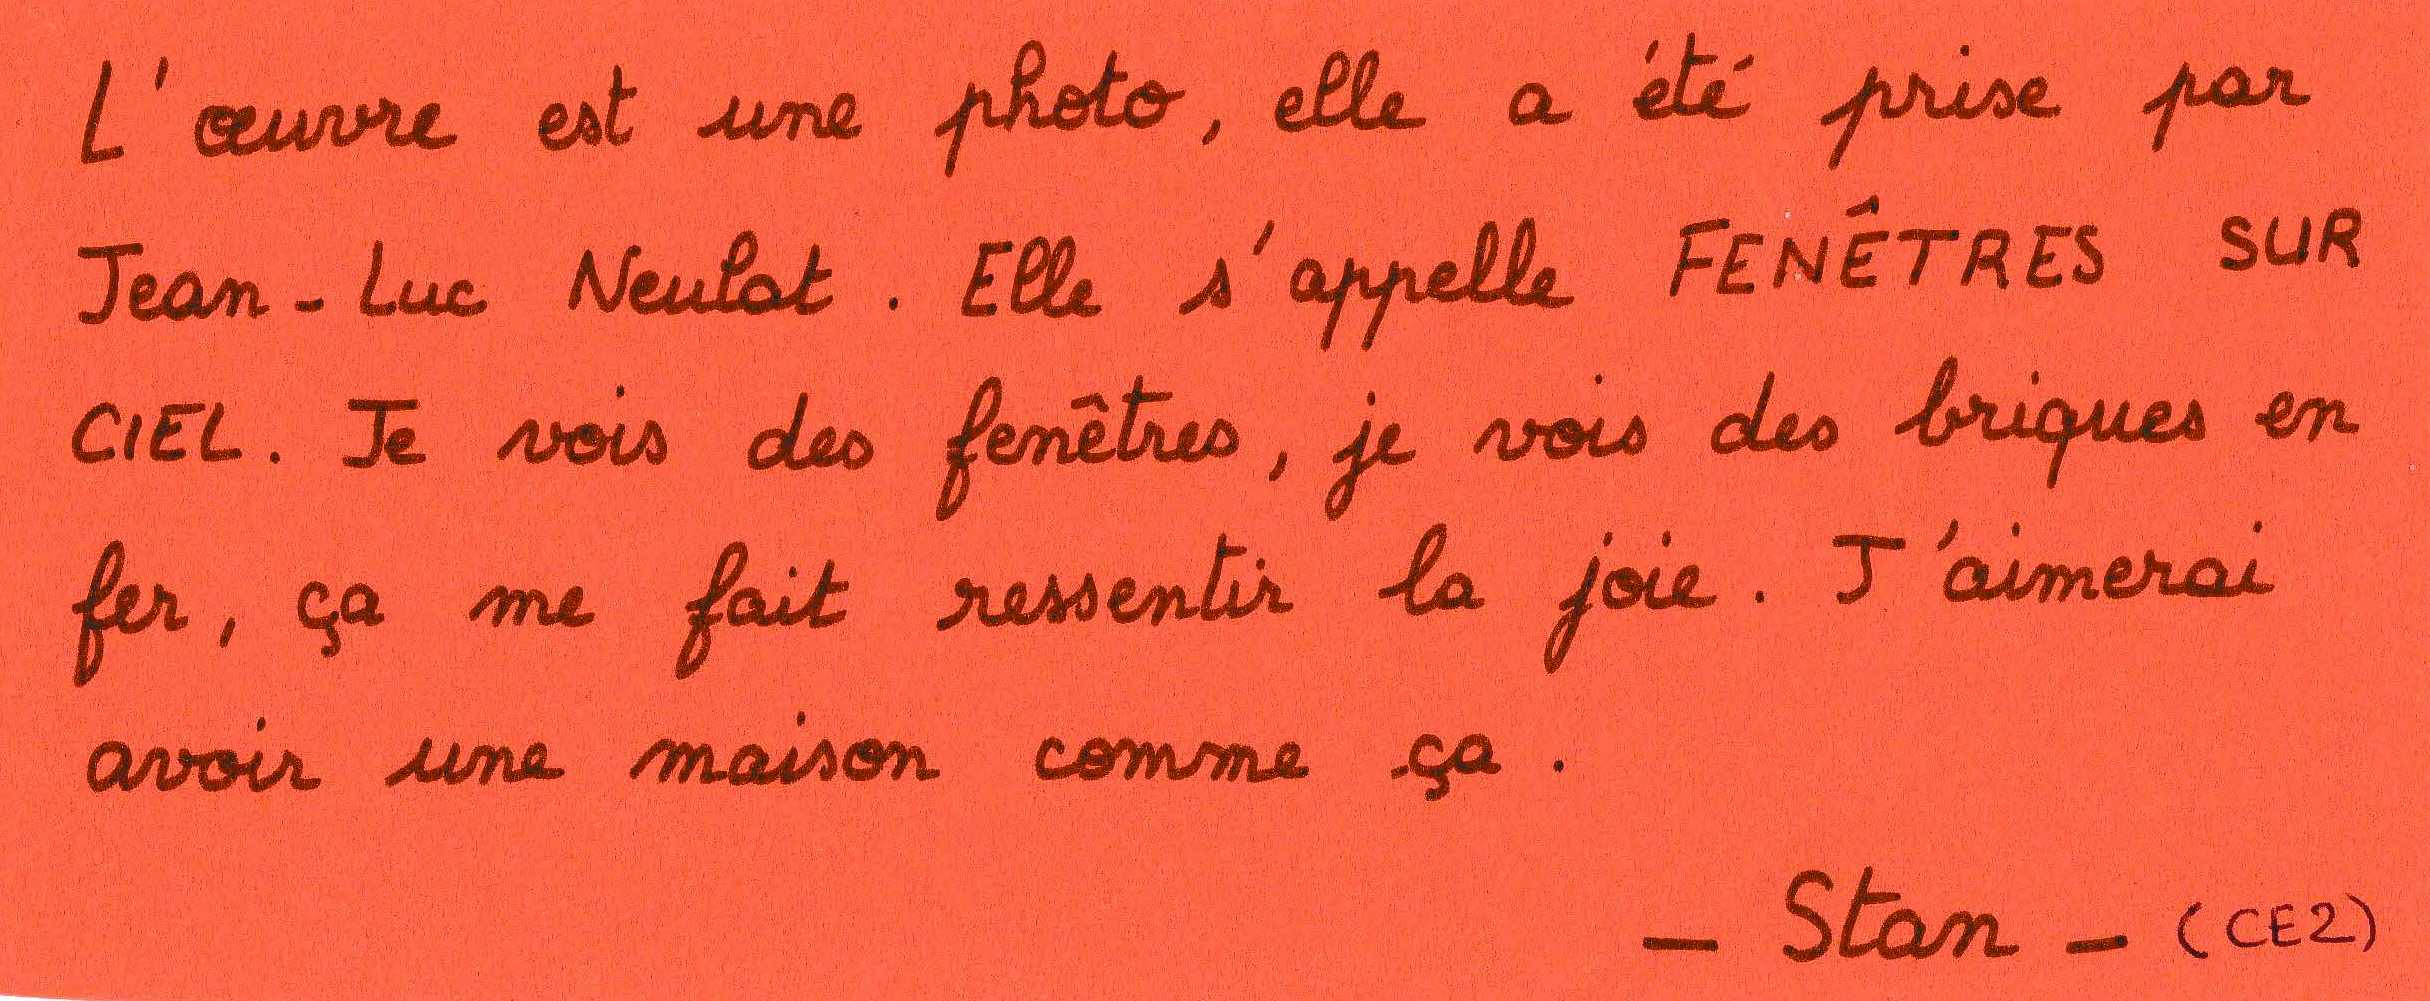 L'œuvre est une photo, elle a été prise par
Jean-Luc Neulat. Elle s'appelle FENÊTRES SUR
CIEL. Je vois des fenêtres, je vois des briques en
fer, ça me fait ressentir la joie. J'aimerai
avoir une maison comme ça.
– Stan – (CE2)